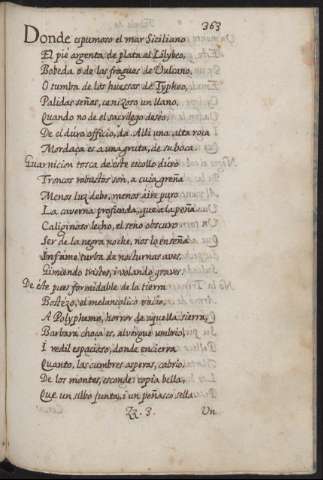 363
Donde espumoso el mar Siciliano
El pie argenta de plata al Lilybeo,
Bobeda o de las fraguas de Vulcano,
O tumba de los huessos de Typheo,
Palidas señas, cenizoso un llano,
Quando no de el sacrilego deseo,
De el duro officio, da. Alli una alta roca
Mordaça es a una gruta, de su boca.
Guarnicion tosca de este escollo duro
Troncos robustos son, a cuia greña
Menos luz debe, menos aire puro
La caverna profunda, que a la peña.
Caliginoso lecho, el seno obscuro
Ser de la negra noche, nos lo enseña
Infame turba de nocturnas aves,
Gimiendo tristes, i volando graves.
De este pues formidable de la tierra
Bostezo, el melancolico vacio,
A Polyphemo, horror de aquella sierra,
Barbara choça es, alvergue umbrio,
I redil espacioso, donde encierra
Quanto, las cumbres asperas, cabrio,
De los montes, esconde: copia bella,
Que un silbo junta, i un peñasco sella.
Zz. 3. Un